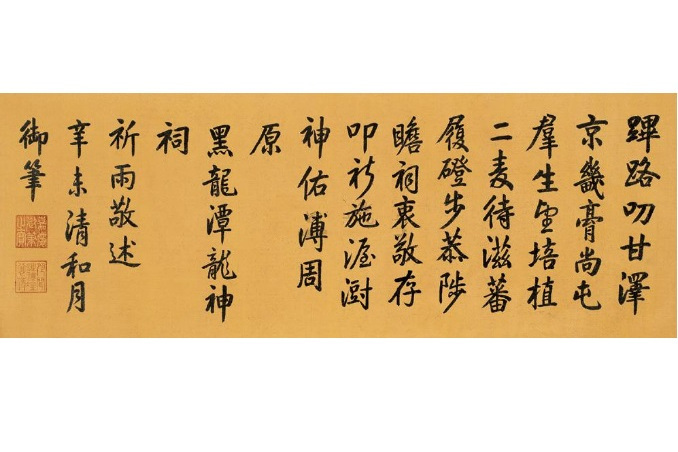 蹕路叨甘澤
京畿膏尚屯
羣生望培植
二麥待滋蕃
履磴步恭陟
瞻祠衷敬存
叩祈施渥澍
神佑溥周
原
黑龍潭龍神
祠
祈雨敬述
辛未清和月
御筆